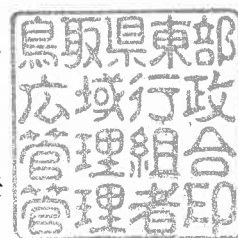 鳥取県東部
広域行政
管理組合
管理者印